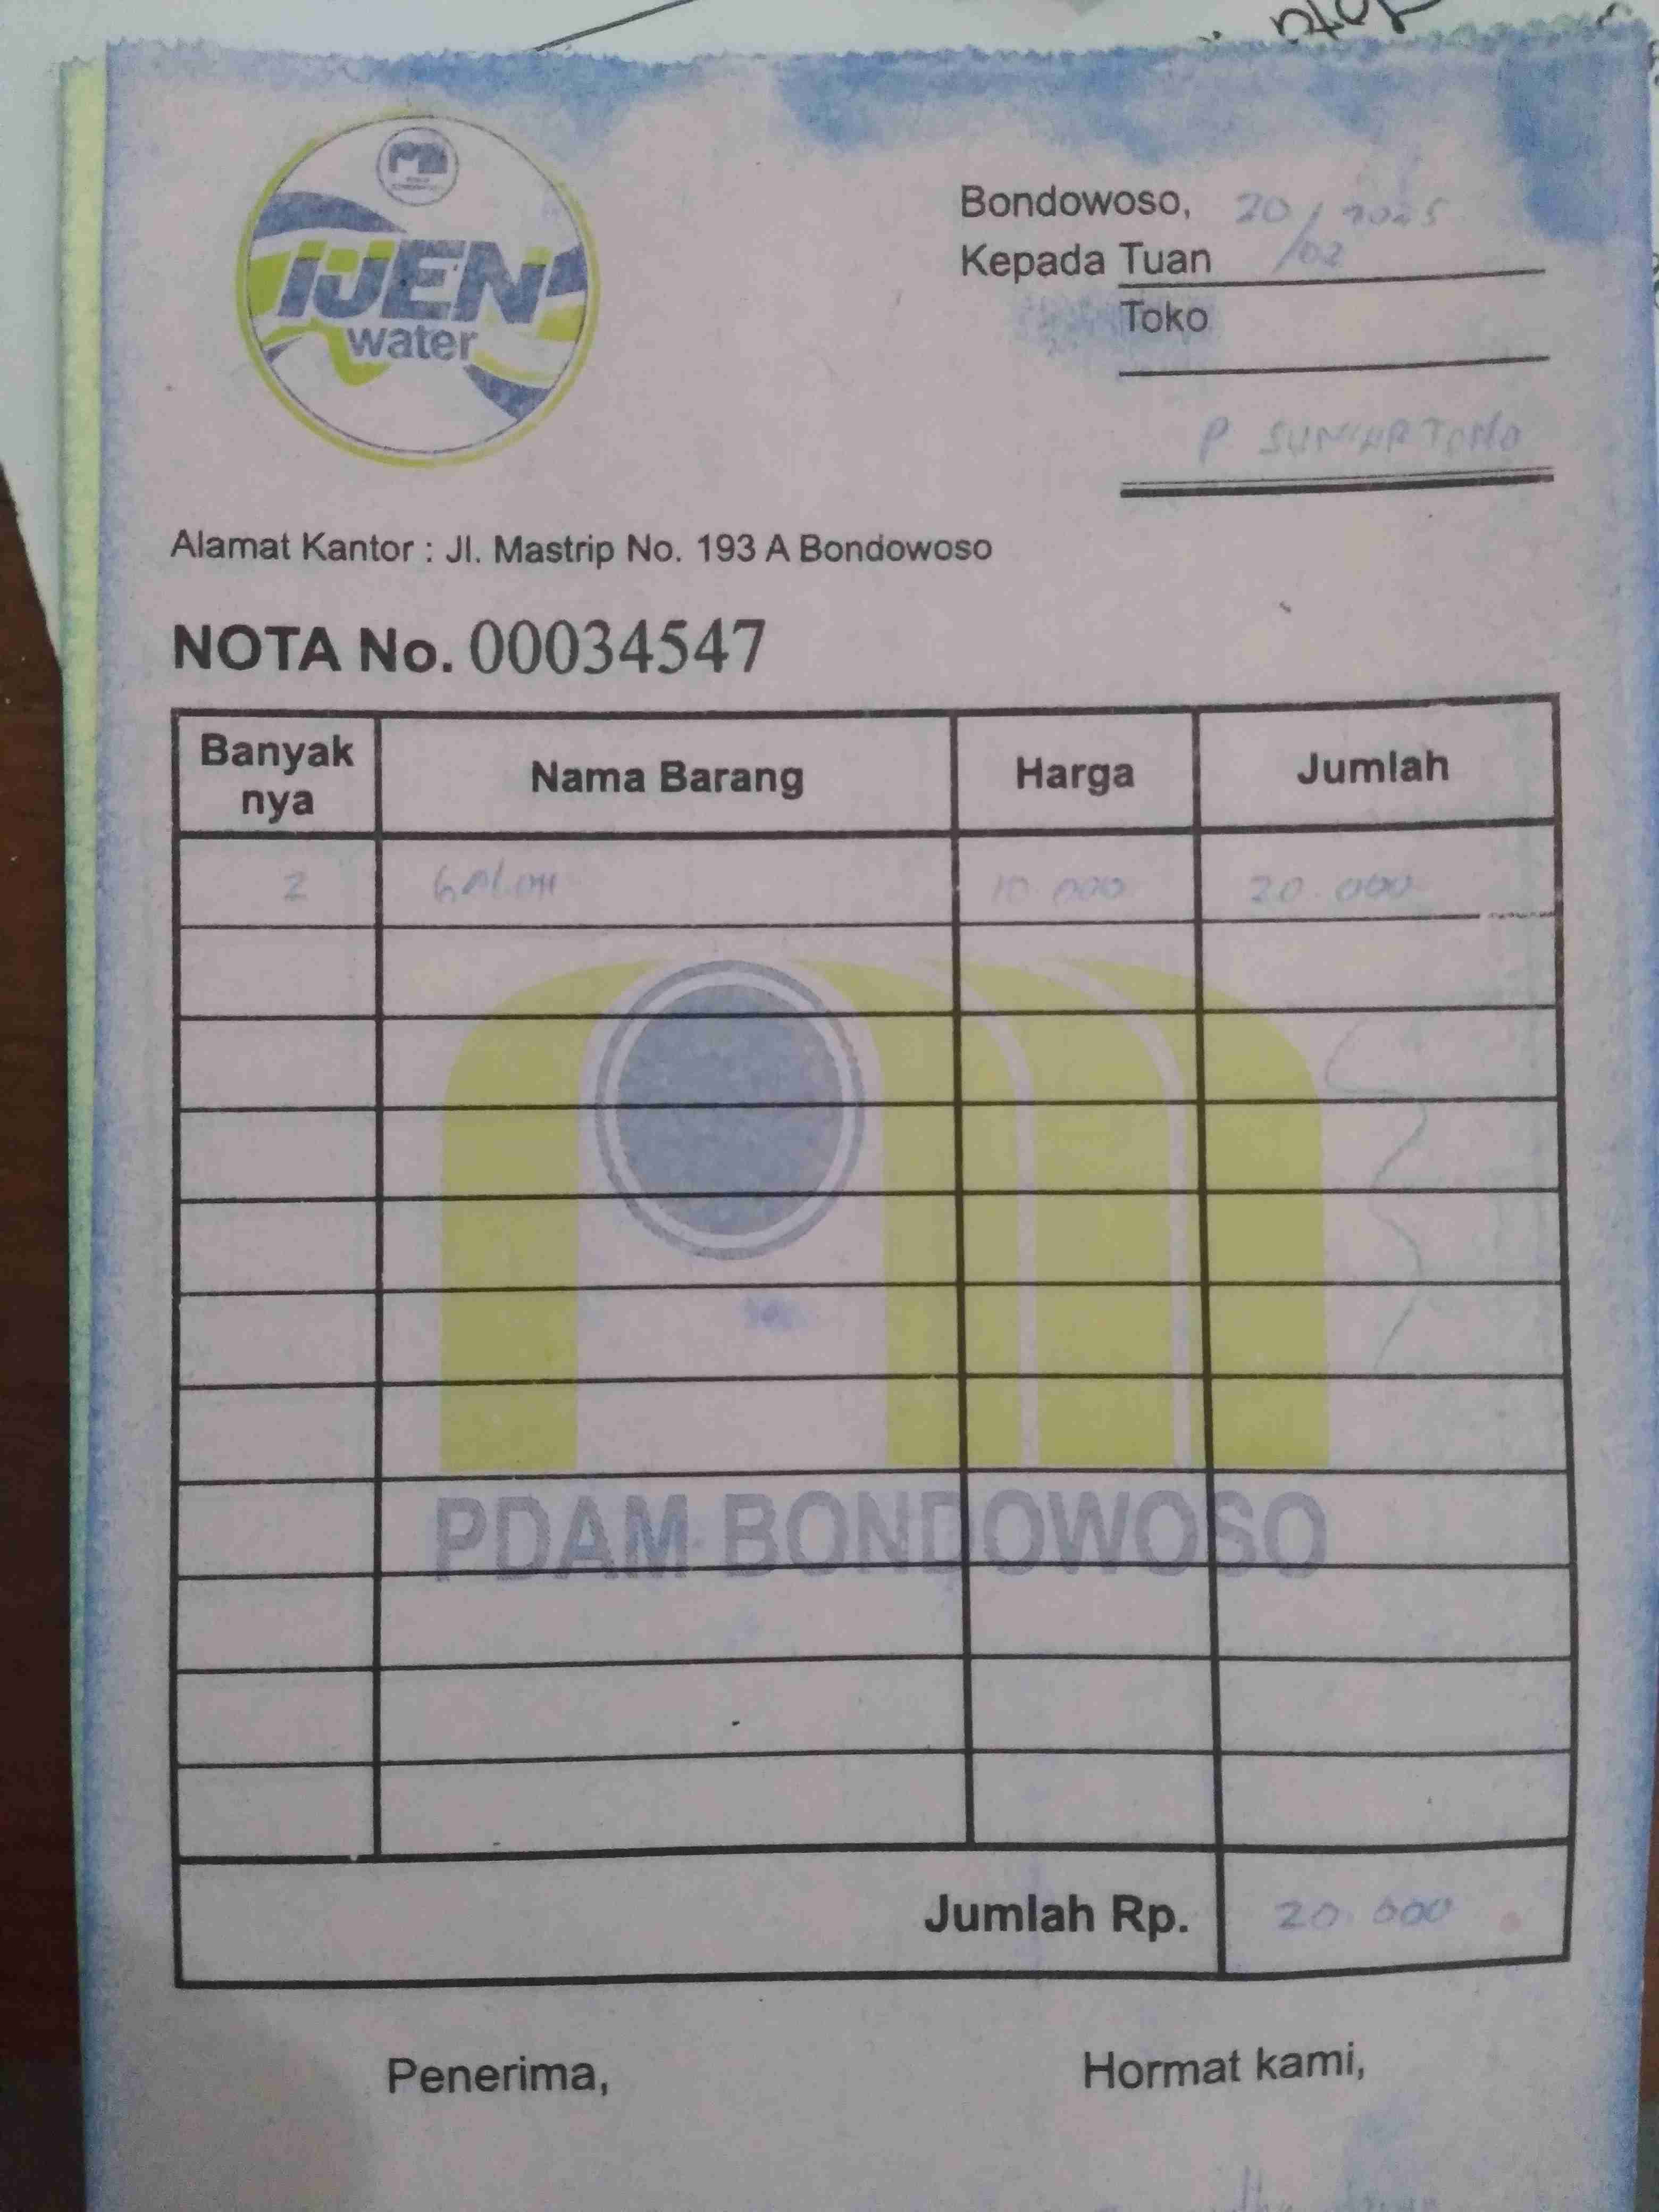 IJEN
water
Bondowoso, 20/02 2025
Kepada Tuan
Toko
P
Alamat Kantor : Jl. Mastrip No. 193 A Bondowoso
NOTA No. 00034547
Banyak nya Nama Barang Harga Jumlah
2 GALON 10.000 20.000
PDAM BONDOWOSO
Jumlah Rp. 20.000
Penerima, Hormat kami,